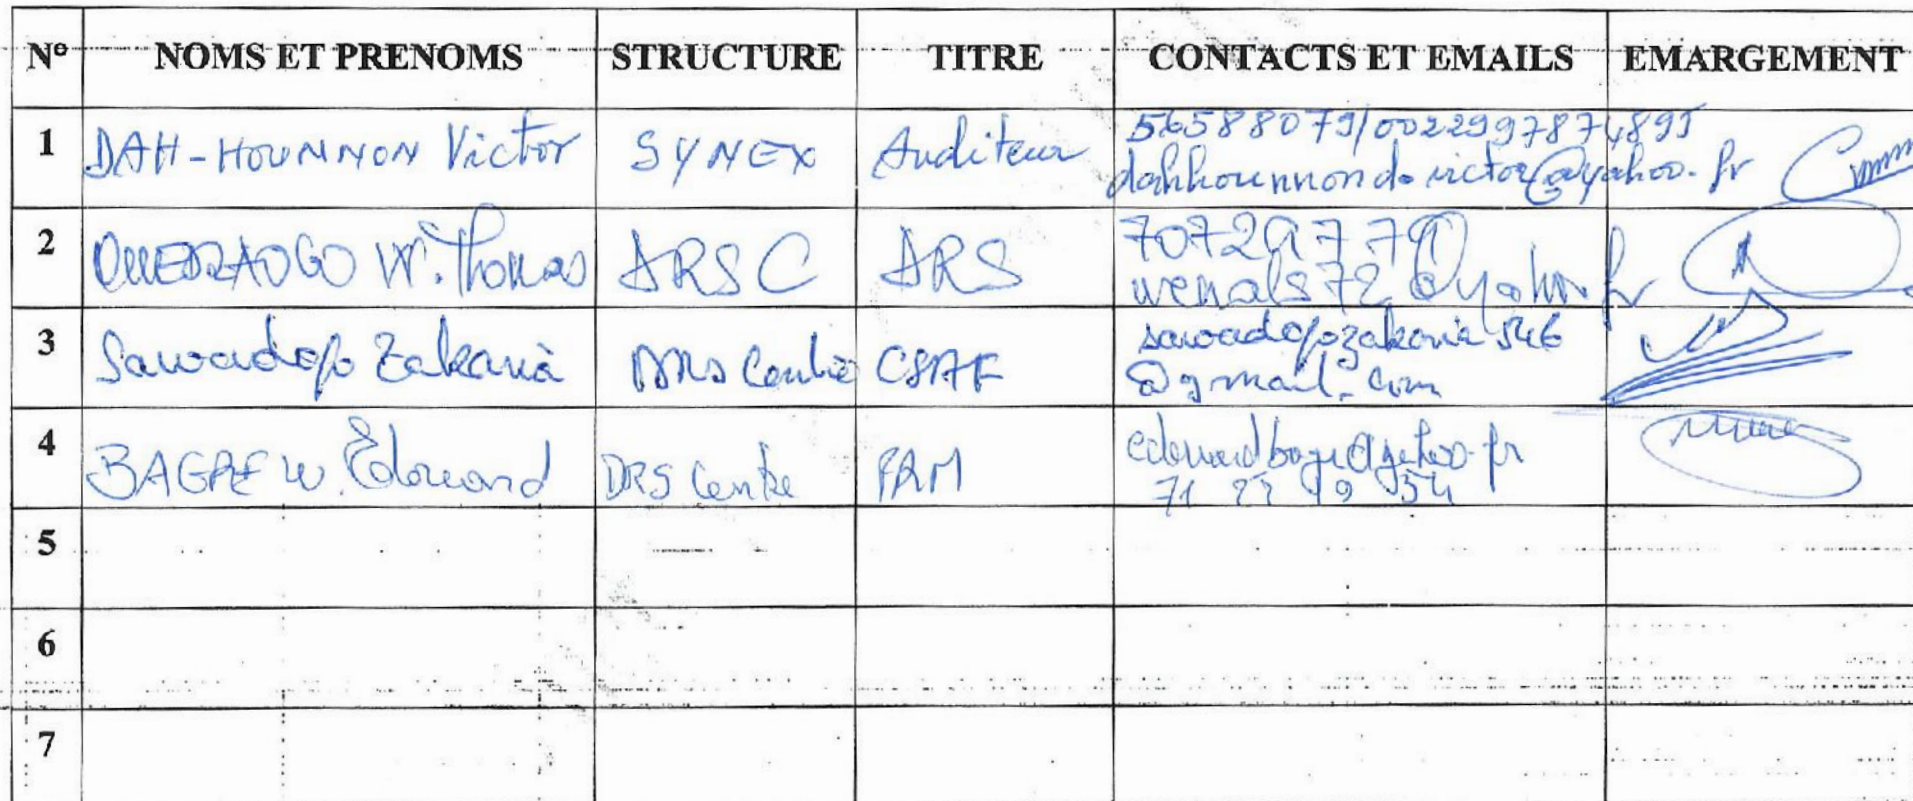 N° NOMS ET PRENOMS STRUCTURE TITRE CONTACTS ET EMAILS EMARGEMENT
1 DAH-HOUNNON Victor SYNEX Auditeur 56588079/0022997874895
dahhounnondovictor@yahoo.fr
2 OUEDRAOGO W. Thomas DRSC DRS
@yahoo.fr
3 Sawadogo Zakaria DRS Centre CSAF sawadogozakaria546
@gmail.com
4 BAGRE W. Edouard DRS Centre PRM
71 19 54
5
6
7